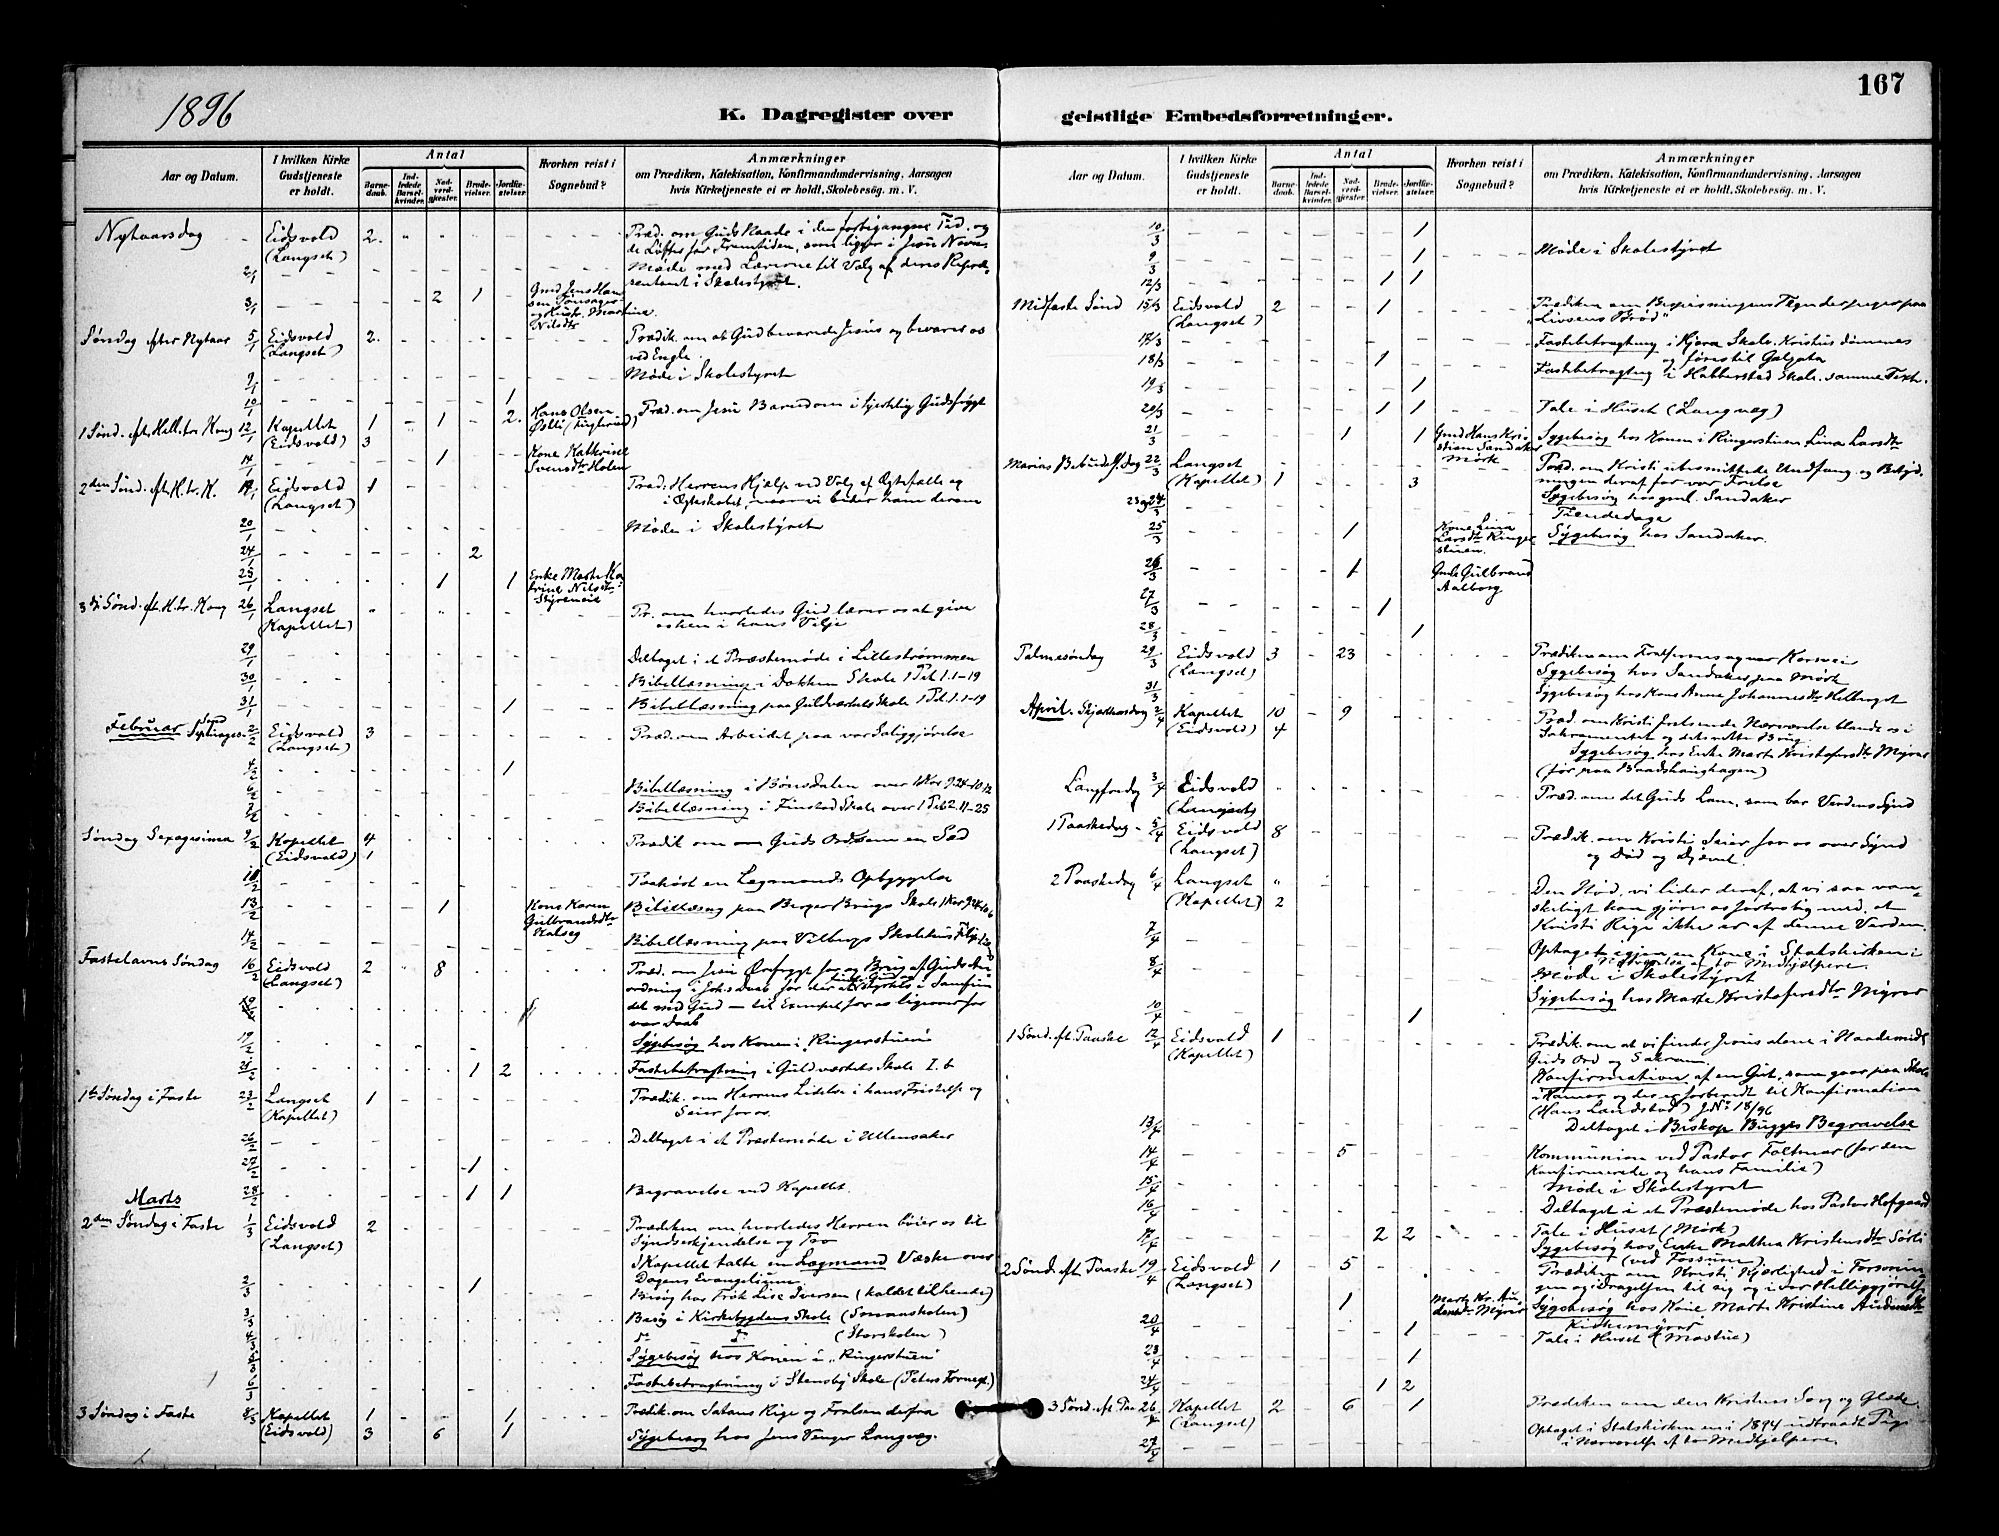 167
1896
K. Dagregister over geistlige Embedsforretninger.
Aar og Datum.
I hvilken Kirke Gudstjeneste er holdt.
Antal
Barnedaab.
Indledede Barselkvinder.
Nadverdgjæster.
Brudevielser.
Jordfæstelser.
Hvorhen reist i Sognebud?
Anmærkninger
om Prædiken, Katekisation, Konfirmandundervisning, Aarsagen
hvis Kirketjeneste ei er holdt. Skolebesøg. m. V.
Nytaarsdag Eidsvold 2. Præd. om Guds Naade i den forbigangne Tid, og
(Langset) de Løfter for Fremtiden, som ligger i Jesu Navn
2/1 Møde med Lærerne til Valg af deres Repræ-
sentant i Skolestyret.
3/1 2 1
Søndag efter Nytaar 5/1 Eidsvold 2. Prædik. om at Gud bevarede Jesus og bevarer os
(Langset) ved Engle.
9/1 Møde i Skolestyret
10/1 1
1 Sønd. eft. Hell. tr. Kong 12/1 Kapellet 1 1 2. Hans Olsen Præd. om Jesu Barndom i hjertelig Gudsfrygt
(Eidsvold) 3
14/1 1 Kone Kathrine
Svendsdtr Holen
2den Sønd. eft. H. tr. K. 19/1 Eidsvold 1 Præd: Herrens Hjælp ved Valg af Ægtefælle og
(Langset) i Ægteskabet, naar vi beder ham derom
20/1 Møde i Skolestyret
24/1 2
25/1 1 1 Enke Marte Ka-
trine Nilsdtr
3die Sønd. eft. H. tr. Kong 26/1 Langset Pr. om hvorledes Gud lærer os at give
(Kapellet) os hen i hans Vilje
29/1 Deltaget i et Præstemøde i Lillestrømmen
30/1 Bibellæsning i Dokken Skole 1 Pet. 1.1-19
31/1 1 Bibellæsning paa Guldværkets Skole 1 Pet. 1.1-19
Februar Sønd Septuages. 2/2 Eidsvold 3 Præd. om Arbeidet paa vor Saliggjørelse
(Langset)
4/2 1
6/2 Bibellæsning i Bønsdalen over 1 Kor 9.24-10.12
7/2 Bibellæsning i Finstad Skole over 1 Pet 2.11-25
Søndag Sexagesima 9/2 Kapellet 4 Prædik om om Guds Ord som en Sæd
(Eidsvold) 1
10/2 Paahørt en Lægmands Opbyggelse
13/2 1 Kone Karen Bibellæsng paa Berger Brugs Skole 1 Kor 9.24-10.6
Gulbrandsdtr
14/2 Bibellæsning paa Vilbergs Skolehus
Fastelavns Søndag 16/2 Eidsvold 2 8
(Langset)
det med Gud — til Exempel for os ligeover for
vor Daab
19/2 Sygebesøg hos Konen i Ringerstuen
21/2 1 2 Fastebetragtning i Guldværkets Skole I. b
1ste Søndag i Faste 23/2 Langset 1 Prædik. om Herrens Lidelse i hans Fristelse og
(Kapellet) Seier for os.
26/2 Deltaget i et Præstemøde i Ullensaker
27/2 1
Marts 28/2 1 1 Begravelse ved Kapellet.
2den Søndag i Faste 1/3 Eidsvold 2 Prædiken om hvorledes Herren bøier os til
(Langset) Syndserkjendelse og Tro
I Kapellet talte en Lægmand Væske over
Dagens Evangelium
2/3 1 Besøg hos Frøk Lise Iversen (kaldet til hende)
3/3 Besøg i Kirkebygdens Skole (Smaaskolen)
4/3 do do (Storskolen)
5/3 Sygebesøg hos Konen i "Ringerstuen"
6/3 Fastebetragtning i Stensby Skole (Peters Fornegt.)
3 Søndag i Faste 8/3 Kapellet 1 1 Prædik. om Satans Rige og Frelsen derfra
(Eidsvold) 3 6 1 Sygebesøg hos Jens Venger Langvæg.
10/3 1
9/3 1 Møde i Skolestyret
12/3 1 1
Midfaste Sønd 15/3 Eidsvold 2 1 Prædiken om Bespisningens Tegn der peger paa
(Langset) "Livsens Brød"
17/3 Fastebetragtng i Hjera Skole. Kristus dømmes
og føres til Golgata
18/3 1 Fastebetragtng i Habberstad Skole. samme Text.
19/3 1
20/3 1 1 Tale i Huset (Langvæg)
21/3 1 1 Gmd Hans Kri- Sygebesøg hos Konen i Ringerstuen Lina Larsdtr
stian Sandaker
Mørk
Marias Bebudels. Dag 22/3 Langset Præd. om Kristi ubesmittede Undfang og Betyd-
(Kapellet) 1 3 ningen deraf for vor Frelse
Sygebesøg hos gml. Sandaker
23 og 24/3 Tiendedage
25/3 1 Kone Lina Sygebesøg hos Sandaker.
Larsdtr Ringer-
stuen.
26/3 1 Gmd Gulbrand
Aalborg
27/3 1
28/3 1
Palmesøndag 29/3 Eidsvold 3 23 Prædiken om Frelserens og vor Korsvei
(Langset) Sygebesøg hos Sandaker paa Mørk
31/3 Sygebesøg hos Kone Anne Johannesdtr
April. Skjærthorsdag 2/4 Kapellet 10 9 Præd. om Kristi frelsende Nærværelse blandt os i
(Eidsvold) 4 Sakramentet og det rette Brug.
Sygebesøg hos Enke Marte Kristofersdtr Myrer
Langfredag 3/4 Eidsvold Præd. om det Guds Lam, som bar Verdens Synd
(Langset)
1 Paaskedag 5/4 Eidsvold 8 Prædik. om Kristi Seier for os over Synd
(Langset) og Død og Djævel.
2 Paaskedag 6/4 Langset Den Nød, vi lider deraf, at vi saa van-
(Kapellet) 2 skeligt kan gjøre os fortrolig med, at
Kristi Rige ikke er af denne Verden.
7/4 Optaget igjen en Kone i Statskirken i
Nærværelse af to Medhjælpere.
8/4 Møde i Skolestyret
Sygebesøg hos Marte Kristofersdtr Myrer
10/4 1
1 Sønd. eft. Paaske 12/4 Eidsvold 1 Prædik. om at vi finder Jesus alene i Naademidl.
(Kapellet) Guds Ord og Sakram.
Konfirmation af en Gut, som gaar paa Skole
i Hamar og der er forberedt til Konfirmation
(Hans Landstad) J.No 18/96
13/4 Deltaget i Biskop Bugges Begravelse
14/4 5 Kommunion ved Pastor Foltmar (for den
Konfirmerede og hans Familie)
15/4 Møde i Skolestyret
16/4 Deltaget i et Præstemøde hos Pastor Hofgaard
17/4 2 2 Tale i Huset (Mørk)
Sygebesøg hos Enke Mathea Kristensdtr Sørli
(ved Fossum)
2 Sønd. eft Paaske 19/4 Eidsvold 1 5 Prædiken om Kristi Kjærlighed i Forsonin-
(Langset) gen og i Dragelsen til sig og i vor Helliggjørelse
1 Marte Kr. Au- Sygebesøg hos Kone Marte Kristine Audensdtr
densdtr Myrer Kirkemyrer
20/4 1 Tale i Huset (Mostue)
23/4 1
24/4 1 2
3 Sønd. eft Paa 26/4 Kapellet 2 6 1 Prædiken om den Kristens Sorg og Glæde
(Langset) Optaget i Statskirken en i 1894 udtraadt Pige
27/4 i Nærværelse af to Medhjælpere.